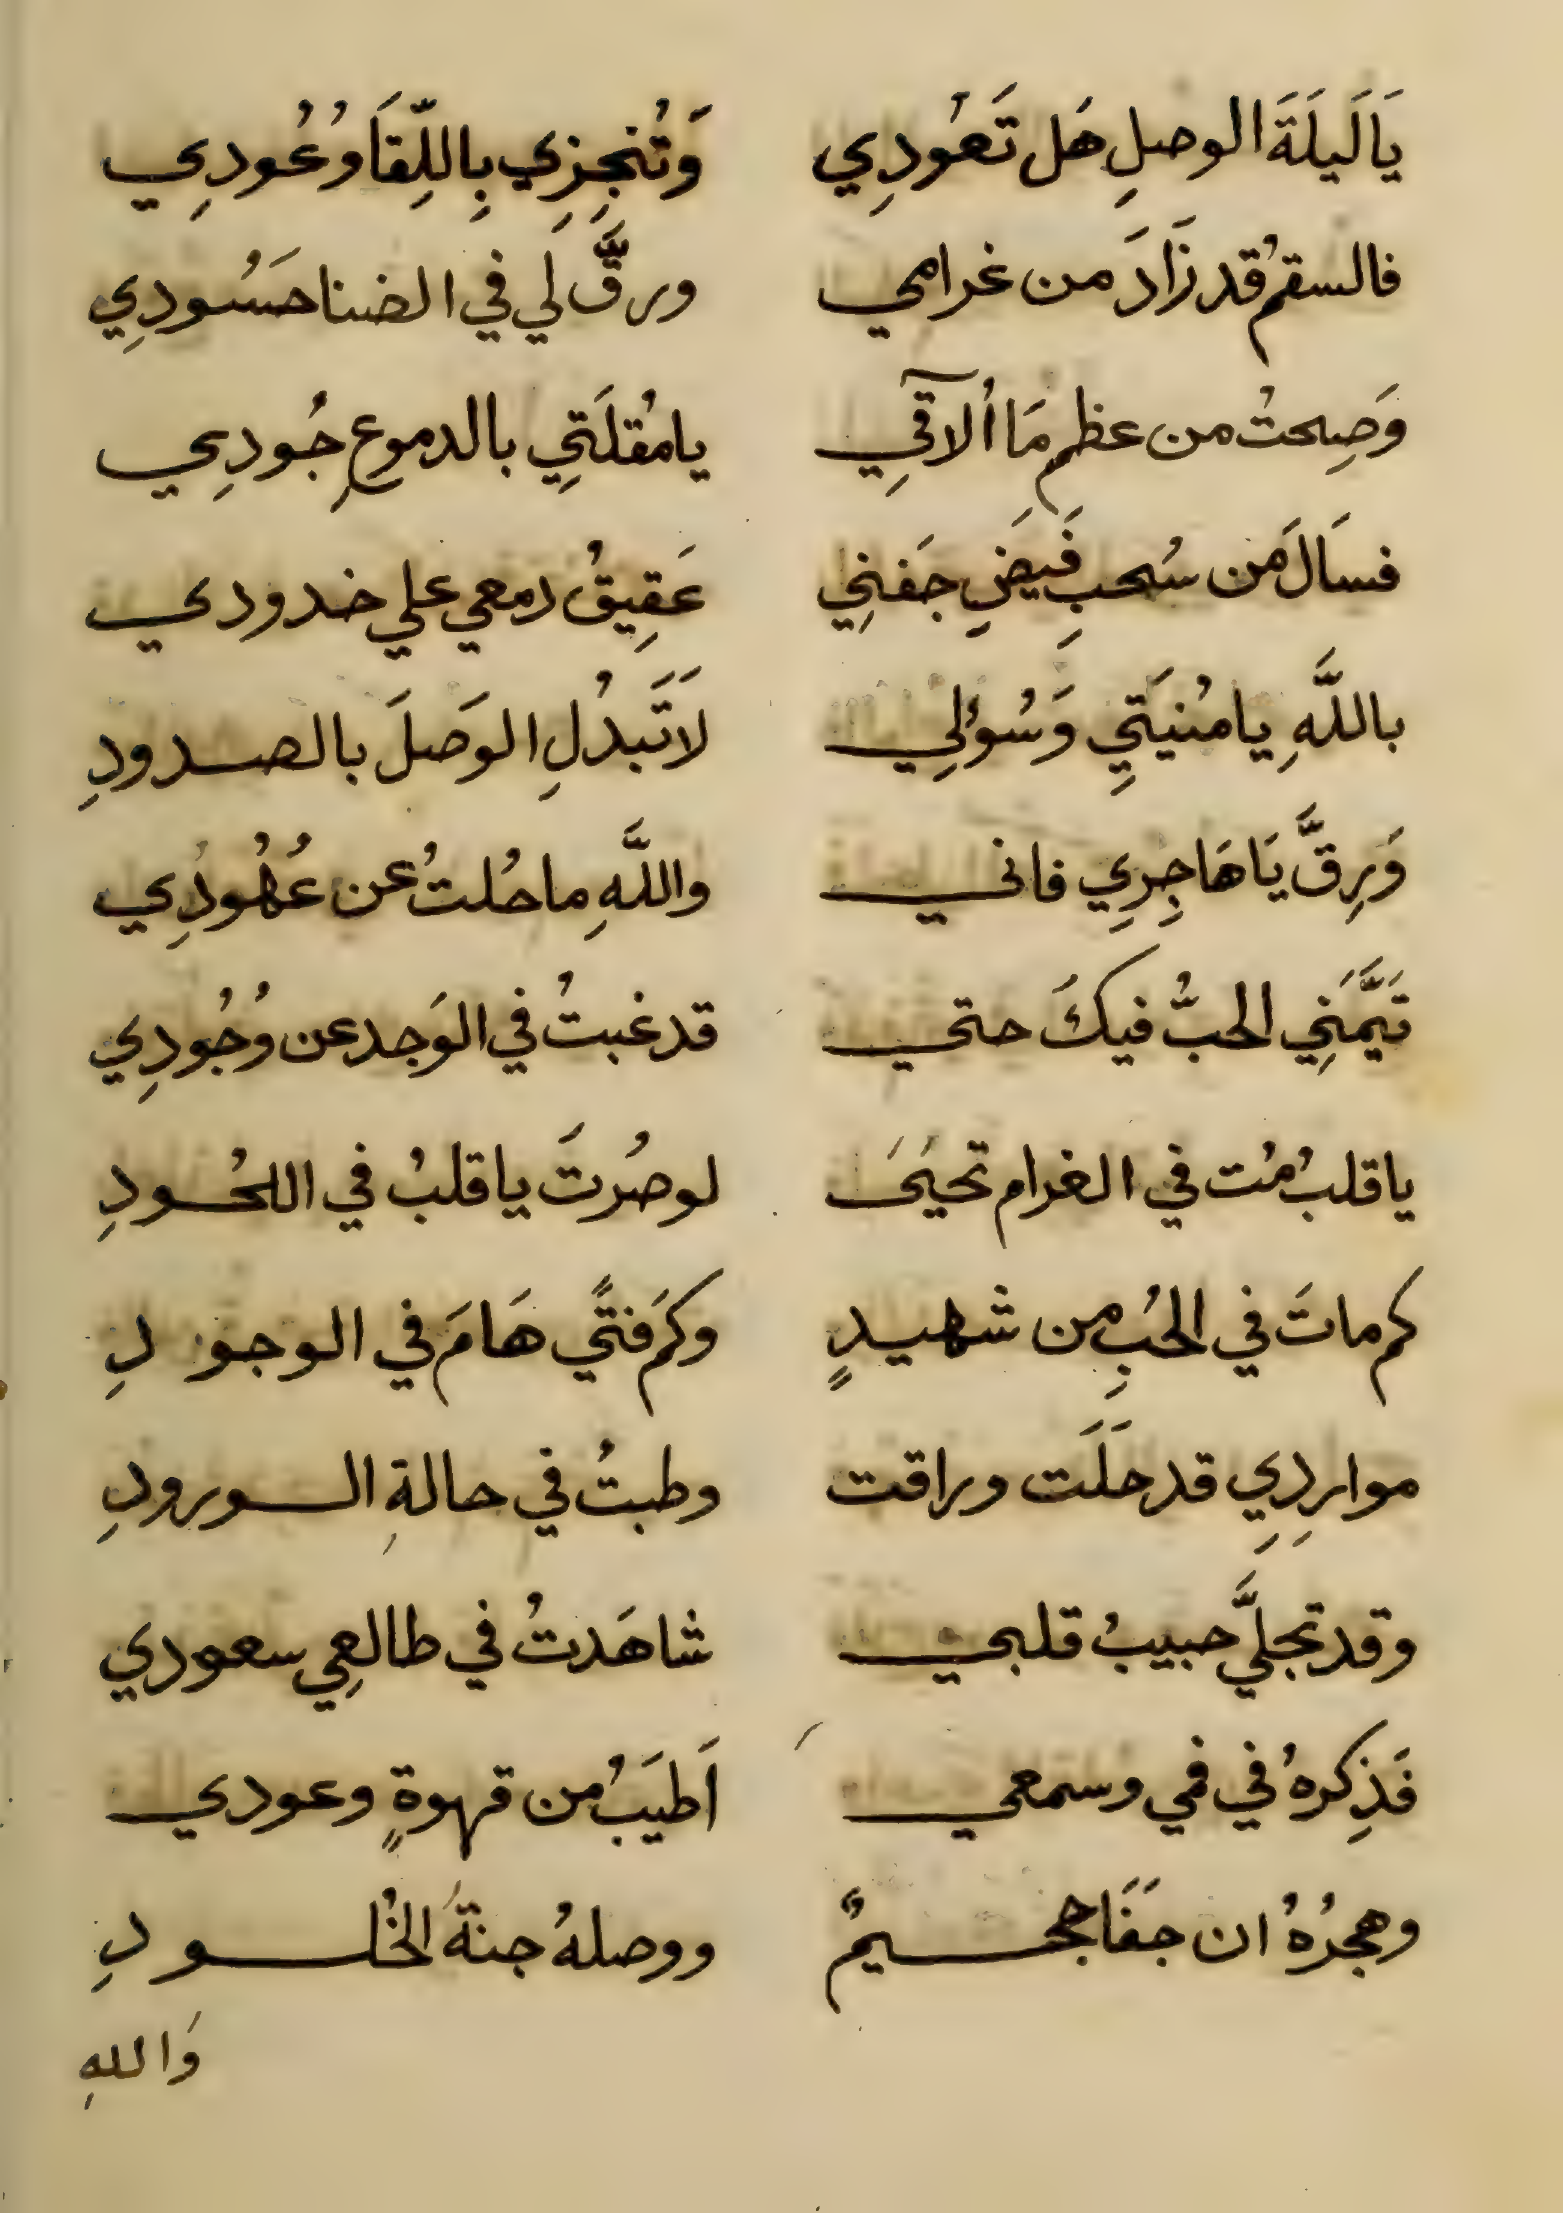 يَا لَيلَةَ الوصلِ هَل تَعُودِي وَتُنجِزِي بِاللِّقَا وُعُودِي
فالسقمُ قد زَادَ من غرامي ورقَّ لَي في الضنا حَسُودِي
وَصِحتُ من عظم مَا أُلآقِي يا مُقلَتِي بالدموعِ جُودِي
فسَالَ مَن سُحبِ فَيضِ جَفنِي عَقِيقُ دمعي علي خدودي
باللَّهِ يا مُنيَتِي وَسُؤلِي لاَ تَبدُلِ الوَصلَ بالصدودِ
وَرِقَّ يَا هَاجِرِي فاني واللَّهِ ما حُلتُ عن عُهُودِي
تَيَّمَنِي الحبُّ فيكَ حتي قد غبتُ في الوَجد عن وُجُودِي
يا قلبُ مُت في الغرام تحيَى لو صُرتَ يا قلبُ في اللحُودِ
كم ماتَ في الحُبِ من شهيدٍ وكم فَتًي هَامَ في الوجودِ
موارِدِي قد حَلَت وراقت وطبتُ في حالةِ الورودِ
وقد تجلَّي حبيبُ قلبي شاهَدتُ في طالعِي سعودي
فَذِكرهُ في فمي وسمعي اَطيَبُ من قهوةٍ وعودي
وهجرُهُ ان جَفَا جحيمٌ ووصلهُ جنةُ الخُلودِ
وَاللهِ